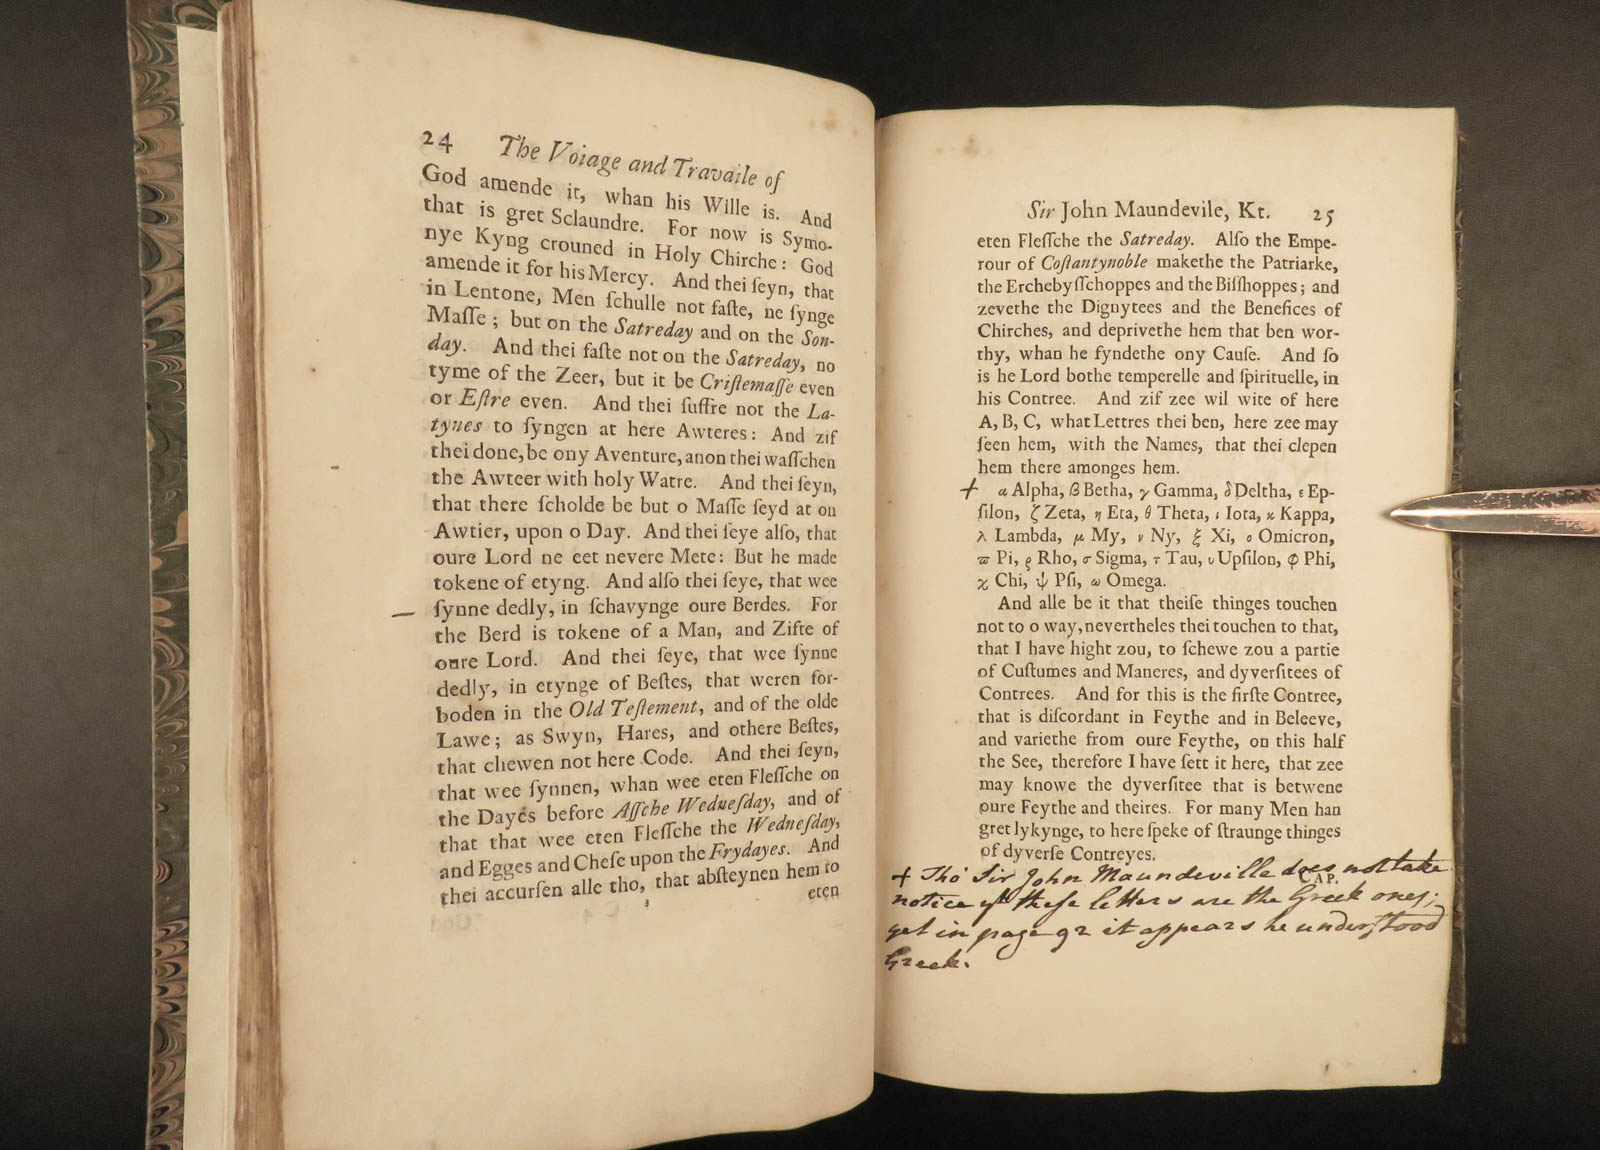 24 The Voiage and Travaile of
God amende it, whan his Wille is. And
that is gret Sclaundre. For now is Symo-
nye Kyng crouned in Holy Chirche: God
amende it for his Mercy. And thei ſeyn, that
in Lentone, Men ſchulle not faſte, ne ſynge
Maſſe; but on the Satreday and on the Son-
day. And thei faſte not on the Satreday, no
tyme of the Zeer, but it be Criſtemaſſe even
or Eſtre even. And thei ſuffre not the La-
tynes to ſyngen at here Awteres: And zif
thei done, be ony Aventure, anon thei waſſchen
the Awteer with holy Watre. And thei ſeyn,
that there ſcholde be but o Maſſe ſeyd at on
Awtier, upon o Day. And thei ſeye alſo, that
oure Lord ne eet nevere Mete: But he made
tokene of etyng. And alſo thei ſeye, that wee
ſynne dedly, in ſchavynge oure Berdes. For
the Berd is tokene of a Man, and Zifte of
oure Lord. And thei ſeye, that wee ſynne
dedly, in etynge of Beſtes, that weren for-
boden in the Old Teſtement, and of the olde
Lawe; as Swyn, Hares, and othere Beſtes,
that chewen not here Code. And thei ſeyn,
that wee ſynnen, whan wee eten Fleſſche on
the Dayes before Aſſche Wedneſday, and of
that that wee eten Fleſſche the Wedneſday,
and Egges and Cheſe upon the Frydayes. And
thei accurſen alle tho, that abſteynen hem to
eten
Sir John Maundevile, Kt. 25
eten Fleſſche the Satreday. Alſo the Empe-
rour of Coſtantynoble makethe the Patriarke,
the Erchebyſſchoppes and the Biſſhoppes; and
zevethe the Dignytees and the Benefices of
Chirches, and deprivethe hem that ben wor-
thy, whan he fyndethe ony Cauſe. And ſo
is he Lord bothe temperelle and ſpirituelle, in
his Contree. And zif zee wil wite of here
A, B, C, what Lettres thei ben, here zee may
ſeen hem, with the Names, that thei clepen
hem there amonges hem.
+ α Alpha, β Betha, γ Gamma, δ Deltha, ε Ep-
ſilon, ζ Zeta, η Eta, θ Theta, ι Iota, κ Kappa,
λ Lambda, μ My, ν Ny, ξ Xi, ο Omicron,
ϖ Pi, ϱ Rho, σ Sigma, τ Tau, υ Upſilon, φ Phi,
χ Chi, ψ Pſi, ω Omega.
And alle be it that theiſe thinges touchen
not to o way, nevertheles thei touchen to that,
that I have hight zou, to ſchewe zou a partie
of Cuſtumes and Maneres, and dyverſitees of
Contrees. And for this is the firſte Contree,
that is diſcordant in Feythe and in Beleeve,
and variethe from oure Feythe, on this half
the See, therefore I have ſett it here, that zee
may knowe the dyverſitee that is betwene
oure Feythe and theires. For many Men han
gret lykynge, to here ſpeke of ſtraunge thinges
of dyverſe Contreyes.
CAP.
+ Tho' Sir John Maundeville does not take
notice yt theſe letters are the Greek ones;
yet in page 92 it appears he underſtood
Greek.